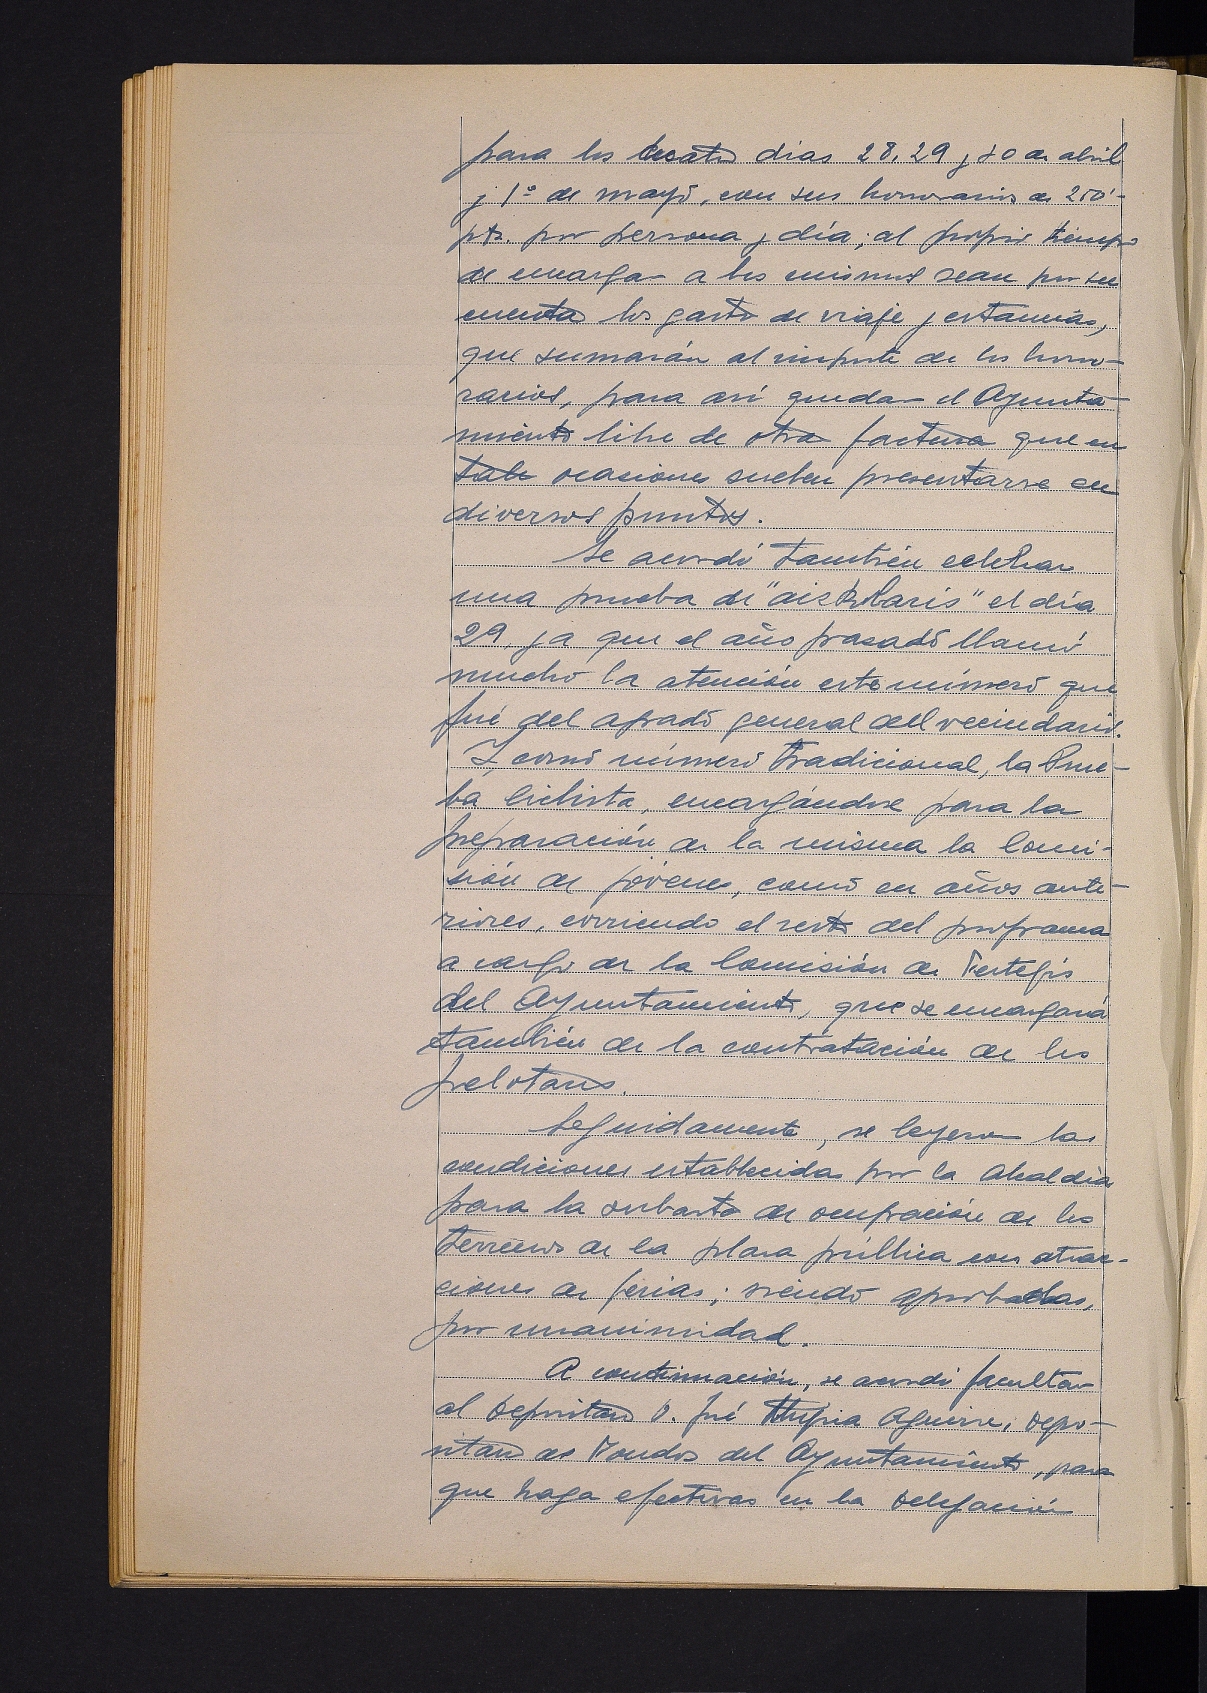 para los cuatro dias 28, 29 y 30 de abril
y 1º de mayo, con sus honorarios de 250'-
pts. por persona y día; al propio tiempo
de encargar a los mismos sean por su
cuenta los gastos de viaje y estancias,
que sumarán al importe de los hono-
rarios, para así quedar el Ayunta-
miento libre de otra factura que en
tales ocasiones suelen presentarse en
diversos puntos.
Se acordó también celebrar
una prueba de "aizkolaris" el día
29, ya que el año pasado llamó
mucho la atención este número que
fué del agrado general del vecindario.
Y, como número tradicional, la Prue-
ba Ciclista, encargándose para la
preparación de la misma la Comi-
sión de jóvenes, como en años ante-
riores, corriendo el resto del programa
a cargo de la Comisión de Festejos
del Ayuntamiento, que se encargará
también de la contratación de los
pelotaris.
Seguidamente, se leyeron las
condiciones establecidas por la Alcaldía
para la subasta de ocupación de los
terrenos de la plaza pública con atrac-
ciones de ferias; siendo aprobadas,
por unanimidad.
A continuación, se acordó facultar
al Depositario D. José Aguirre, Depo-
sitario de Fondos del Ayuntamiento, para
que haga efectivas en la Delegación